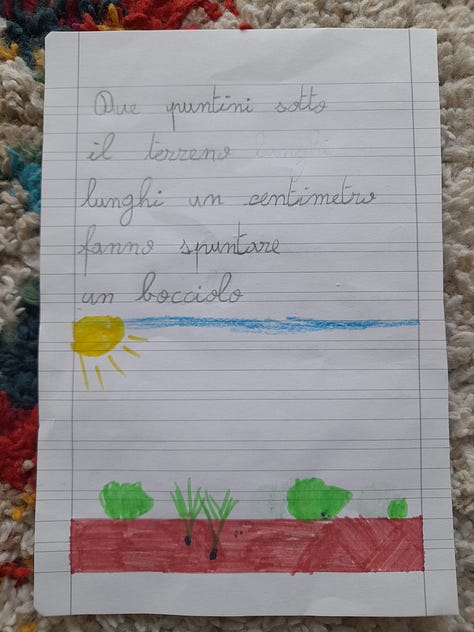 Due puntini sotto
il terreno
lunghi un centimetro
fanno spuntare
un bocciolo